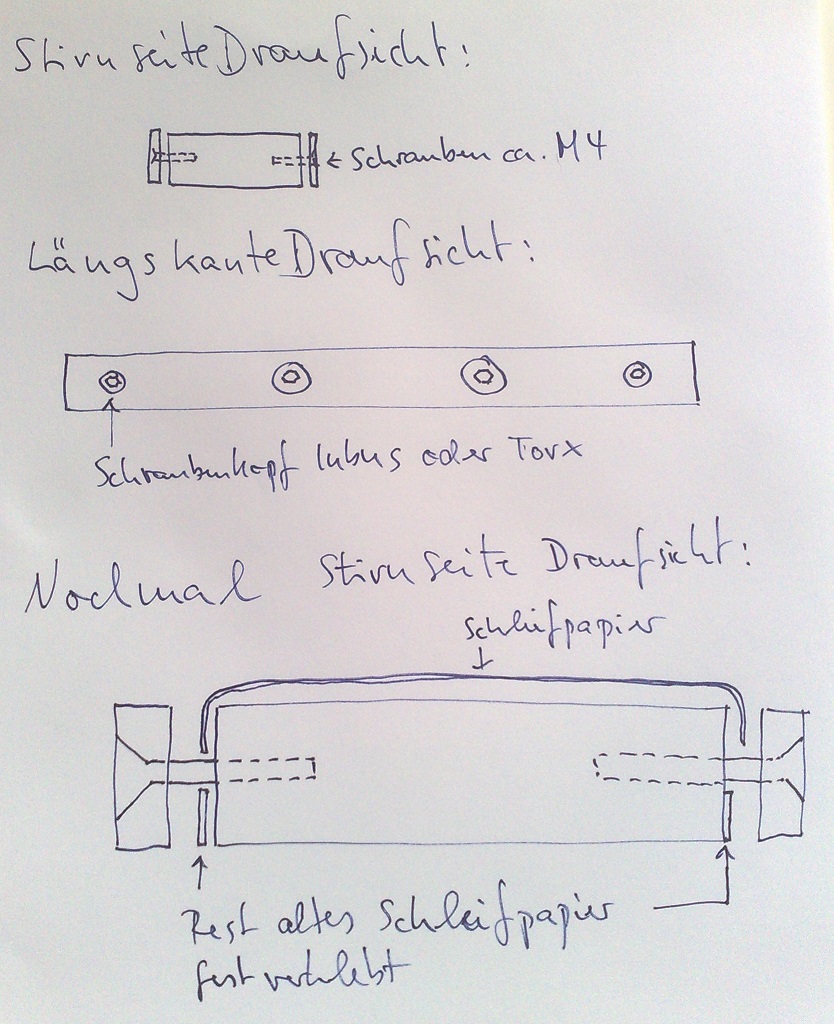 Stirnseite Draufsicht:
← Schrauben ca. M4
Längskante Draufsicht:
Schraubenkopf Inbus oder Torx
Nochmal Stirnseite Draufsicht:
Schleifpapier
Rest altes Schleifpapier
fest verklebt